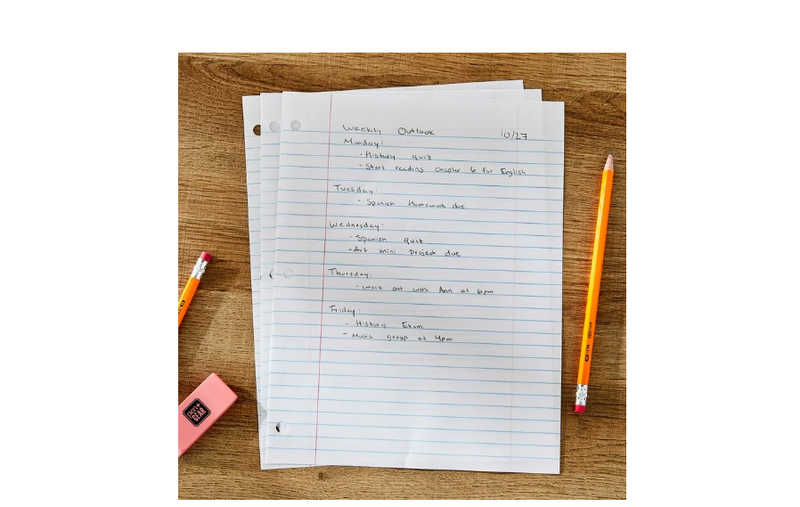 Weekly Outlook 10/27
Monday:
- History quiz
- Start reading chapter 6 for English
Tuesday:
- Spanish Homework due
Wednesday:
- Spanish quiz
- Art mini project due
Thursday:
- work out with Ann at 6pm
Friday:
- History Exam
- Music group at 4pm
PEN+
GEAR